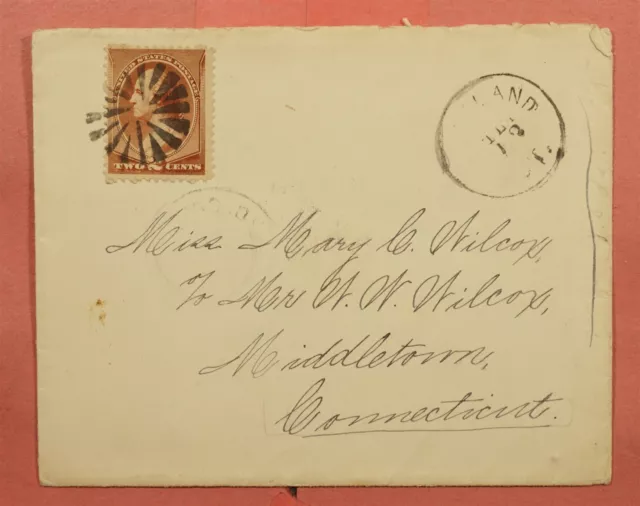 UNITED STATES POSTAGE
TWO 2 CENTS
LAND
12
Miss Mary C. Wilcox,
c/o Mr W. W. Wilcox,
Middletown,
Connecticut.